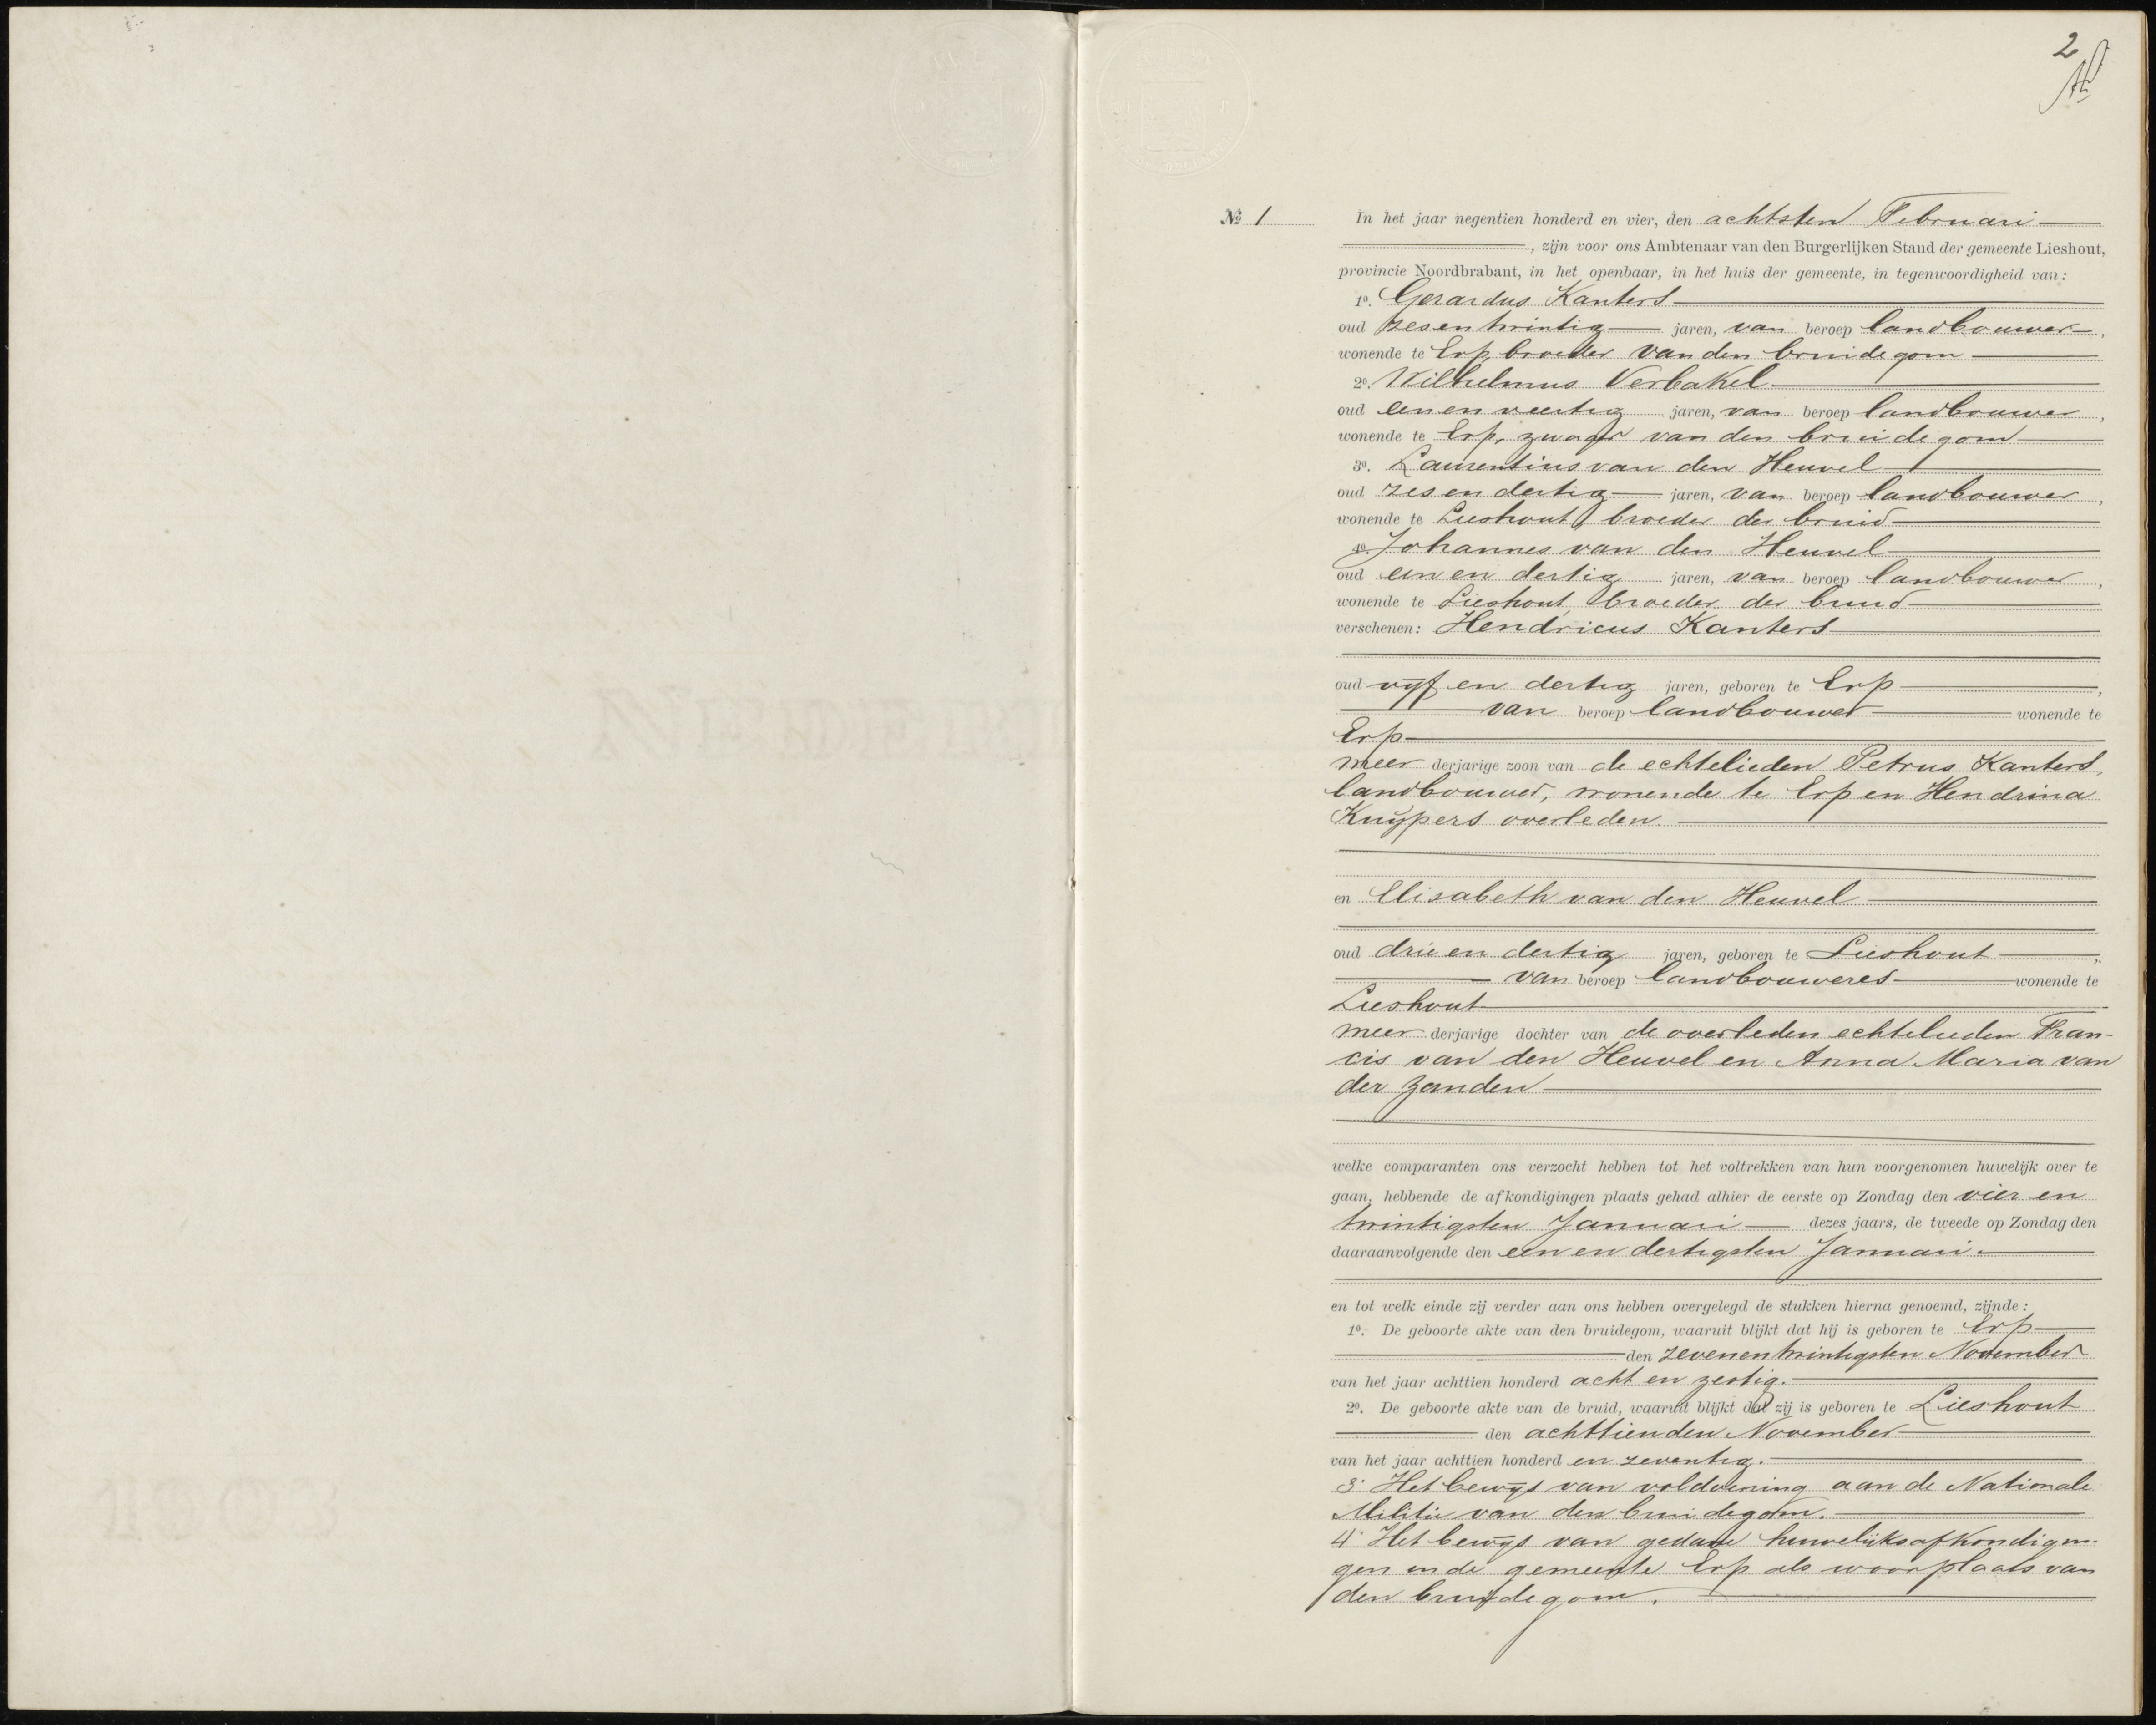 2
№ 1 In het jaar negentien honderd en vier, den achtsten Februari
, zijn voor ons Ambtenaar van den Burgerlijken Stand der gemeente Lieshout,
provincie Noordbrabant, in het openbaar, in het huis der gemeente, in tegenwoordigheid van:
1o. Gerardus Kanters
oud zesentwintig jaren, van beroep landbouwer,
wonende te Erp, broeder van den bruidegom
2o. Wilhelmus Verbakel
oud eenenveertig jaren, van beroep landbouwer,
wonende te Erp, zwager van den bruidegom
3o. Laurentius van den Heuvel
oud zesendertig jaren, van beroep landbouwer,
wonende te Lieshout, broeder der bruid
4o. Johannes van den Heuvel
oud eenendertig jaren, van beroep landbouwer,
wonende te Lieshout, broeder der bruid
verschenen: Hendricus Kanters
oud vijf en dertig jaren, geboren te Erp,
van beroep landbouwer wonende te
Erp
meerderjarige zoon van de echtelieden Petrus Kanters,
landbouwer, wonende te Erp en Hendrina
Kuijpers overleden.
en Elisabeth van den Heuvel
oud drieendertig jaren, geboren te Lieshout,
van beroep landbouweres wonende te
Lieshout
meerderjarige dochter van de overleden echtelieden Fran-
cis van den Heuvel en Anna Maria van
der Zanden
welke comparanten ons verzocht hebben tot het voltrekken van hun voorgenomen huwelijk over te
gaan, hebbende de afkondigingen plaats gehad alhier de eerste op Zondag den vier en
twintigsten Januari dezes jaars, de tweede op Zondag den
daaraanvolgende den een en dertigsten Januari.
en tot welk einde zij verder aan ons hebben overgelegd de stukken hierna genoemd, zijnde:
1o. De geboorte akte van den bruidegom, waaruit blijkt dat hij is geboren te Erp
den zevenentwintigsten November
van het jaar achttien honderd acht en zestig.
2o. De geboorte akte van de bruid, waaruit blijkt dat zij is geboren te Lieshout
den achttienden November
van het jaar achttien honderd en zeventig.
3o Het bewijs van voldoening aan de Nationale
Militie van den bruidegom.
4o Het bewijs van gedane huwelijksafkondigin-
gen in de gemeente Erp als woonplaats van
den bruidegom.